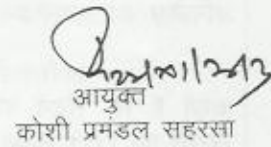 आयुक्त
कोशी प्रमंडल सहरसा